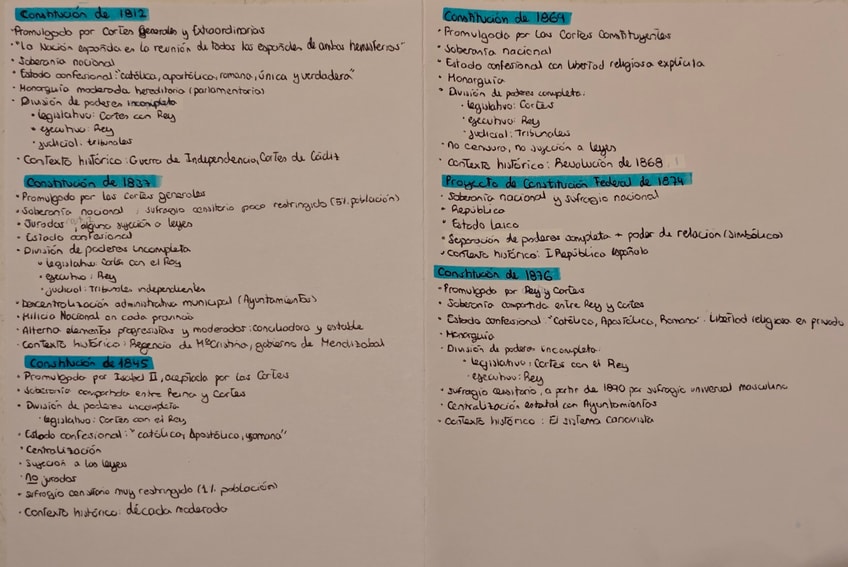 Constitución de 1812
· Promulgado por Cortes Generales y Extraordinarias
· "La Nación española en la reunión de todos los españoles de ambos hemisferios"
· Soberanía nacional
· Estado confesional: "católica, apostólica, romana, única y verdadera"
· Monarquía moderada hereditaria (parlamentaria)
· División de poderes incompleta
· legislativo: Cortes con Rey
· ejecutivo: Rey
· judicial: tribunales
· Contexto histórico: Guerra de Independencia, Cortes de Cádiz
Constitución de 1837
· Promulgado por las Cortes generales
· Soberanía nacional, sufragio censitario poco restringido (5% población)
· Jurados, alguna sujeción a leyes
· Estado confesional
· División de poderes incompleta
· legislativo: Cortes con el Rey
· ejecutivo: Rey
· judicial: Tribunales independientes
· Descentralización administrativa municipal (Ayuntamientos)
· Milicia Nacional en cada provincia
· Alterna elementos progresistas y moderados: conciliadora y estable
· Contexto histórico: Regencia de Mª Cristina, gobierno de Mendizabal
Constitución de 1845
· Promulgado por Isabel II, aceptada por las Cortes
· Soberanía compartida entre Reina y Cortes
· División de poderes incompleta
· legislativo: Cortes con el Rey
· Estado confesional: "católica, Apostólica, romana"
· Centralización
· Sujeción a las leyes
· No jurados
· sufragio censitario muy restringido (1% población)
· Contexto histórico: década moderada
Constitución de 1869
· Promulgada por las Cortes Constituyentes
· Soberanía nacional
· Estado confesional con libertad religiosa explícita
· Monarquía
· División de poderes completa:
· legislativo: Cortes
· ejecutivo: Rey
· judicial: Tribunales
· no censura, no sujeción a leyes
· Contexto histórico: Revolución de 1868
Proyecto de Constitución Federal de 1874
· Soberanía nacional y sufragio nacional
· República
· Estado laico
· Separación de poderes completa + poder de relación (simbólico)
· Contexto histórico: I República española
Constitución de 1876
· Promulgado por Rey y Cortes
· Soberanía compartida entre Rey y Cortes
· Estado confesional: "Católica, Apostólica, Romana". Libertad religiosa en privado
· Monarquía
· División de poderes incompleta:
· legislativo: Cortes con el Rey
· ejecutivo: Rey
· sufragio censitario, a partir de 1890 por sufragio universal masculino
· Centralización estatal con Ayuntamientos
· Contexto histórico: El sistema canovista